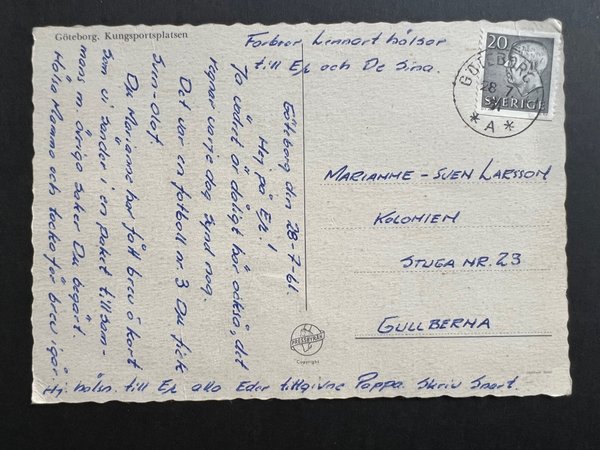 Göteborg. Kungsportsplatsen
Farbror Lennart hälsar
till Er och De Sina.
Göteborg den 28-7-61.
Hej på Er!
Ja vädret är dåligt här också, det
regnar varje dag synd nog.
Det var en fotboll nr. 3 Du fick
Sven-Olof.
Du Marianne har fått brev & kort
som vi sänder i en paket tillsam-
mans m övriga saker Du begärt.
Hälsa Mamma och tacka för brev igår
Hj. hälsn. till Er alla Eder tillgivne Pappa. Skriv Snart.
20
SVERIGE
GÖTEBORG
28.7
61
* A *
MARIANNE - SVEN LARSSON
KOLONIEN
STUGA NR. 23
GULLBERNA
PRESSBYRÅN
Copyright